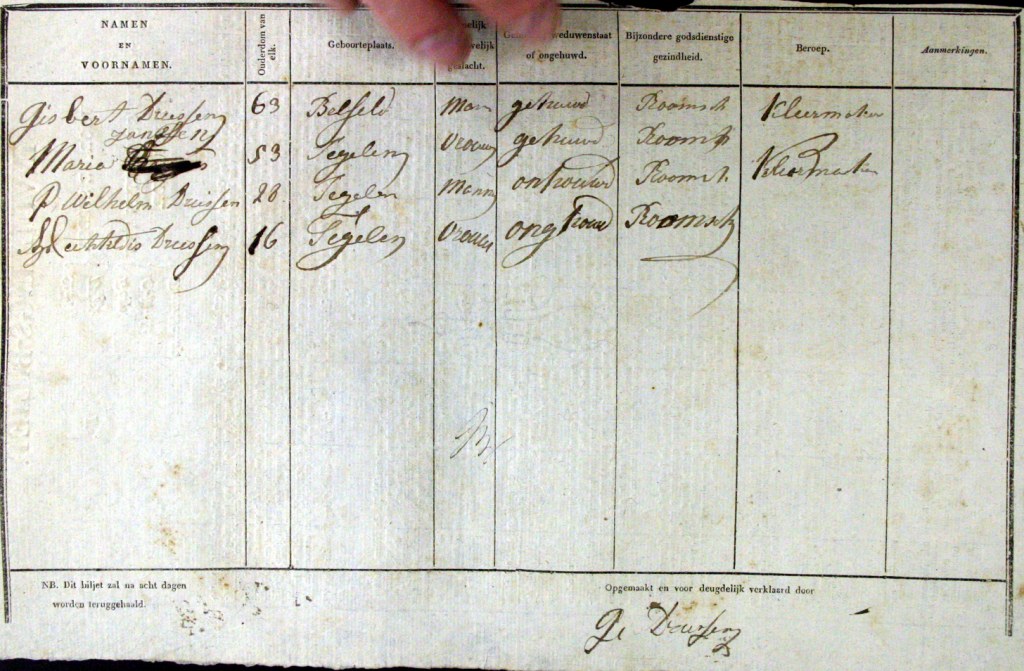 NAMEN EN VOORNAMEN. Ouderdom van elk. Geboorteplaats. gehuwd, weduwenstaat of ongehuwd. Bijzondere godsdienstige gezindheid. Beroep. Aanmerkingen.
Gisbert Driessen 63 Belfeld Man getrouwd Roomsch Kleermaker
Janssen
Maria 53 Tegelen Vrouw getrouwd Roomsch Kleermaken
P Wilhelm Driessen 28 Tegelen Man ontrouwd Roomsch
Driessen 16 Tegelen Vrouw ongtrouwd Roomsch
NB. Dit biljet zal na acht dagen
worden teruggehaald.
Opgemaakt en voor deugdelijk verklaard door
Gi Driessen